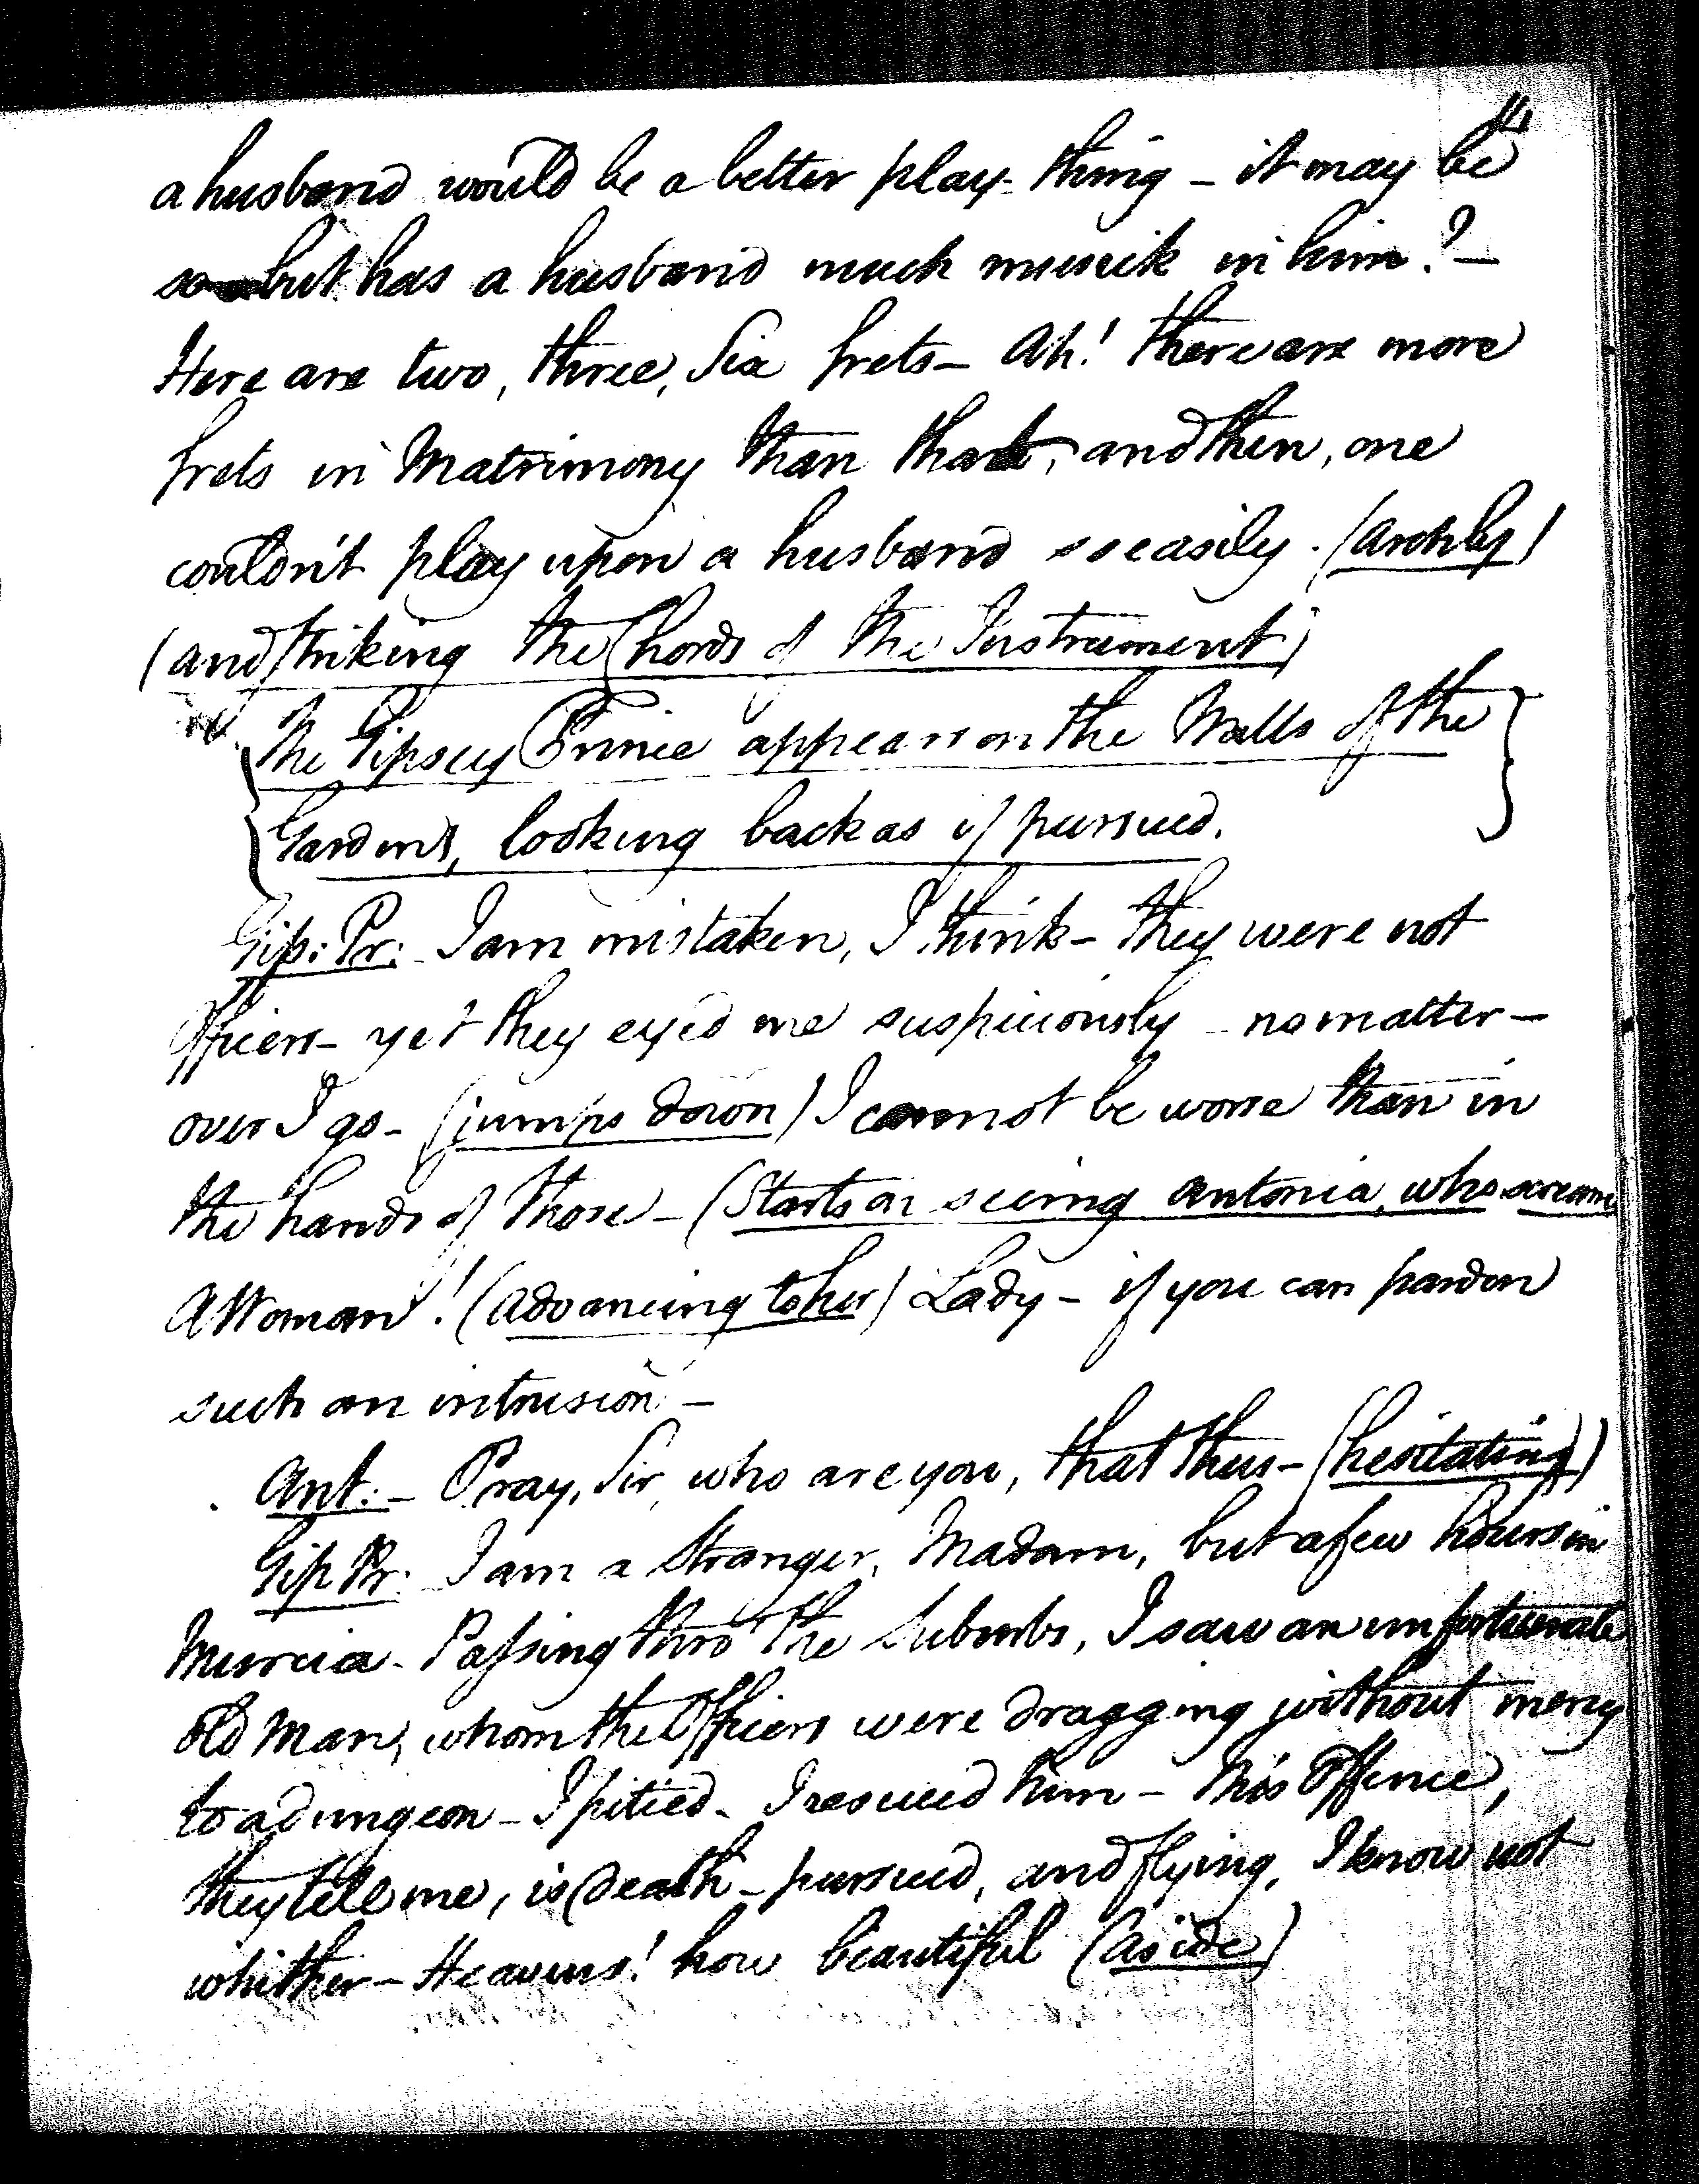 11
a husband would be a better play-thing - it may be
so but has a husband much musick in him? -
Here are two, three, Six frets - Ah! there are more
frets in Matrimony than that, and then, one
couldn't play upon a husband so easily. (Archly)
(and striking the Chords of the Instrument)
The Gipsey Prince appears on the Walls of the
Gardens, looking back as if pursued.
Gip: Pr: I am mistaken, I think - they were not
Officers - yet they ey'd me suspiciously - no matter -
over I go - (jumps down) I cannot be worse than in
the hands of those - (Starts on seeing Antonia, who screams
A Woman! (advancing to her) Lady - if you can pardon
such an intrusion -
Ant: - Pray, Sir, who are you, that thus - (hesitating)
Gip Pr: I am a Stranger, Madam, but a few hours in
Murcia - Passing thro' the Suburbs, I saw an unfortunate
old Man, whom the Officers were dragging without mercy
to a dungeon - I pitied - I rescued him - This Offence,
they tell me, is Death - pursued, and flying, I know not
whither - Heavens! how beautiful (Aside)